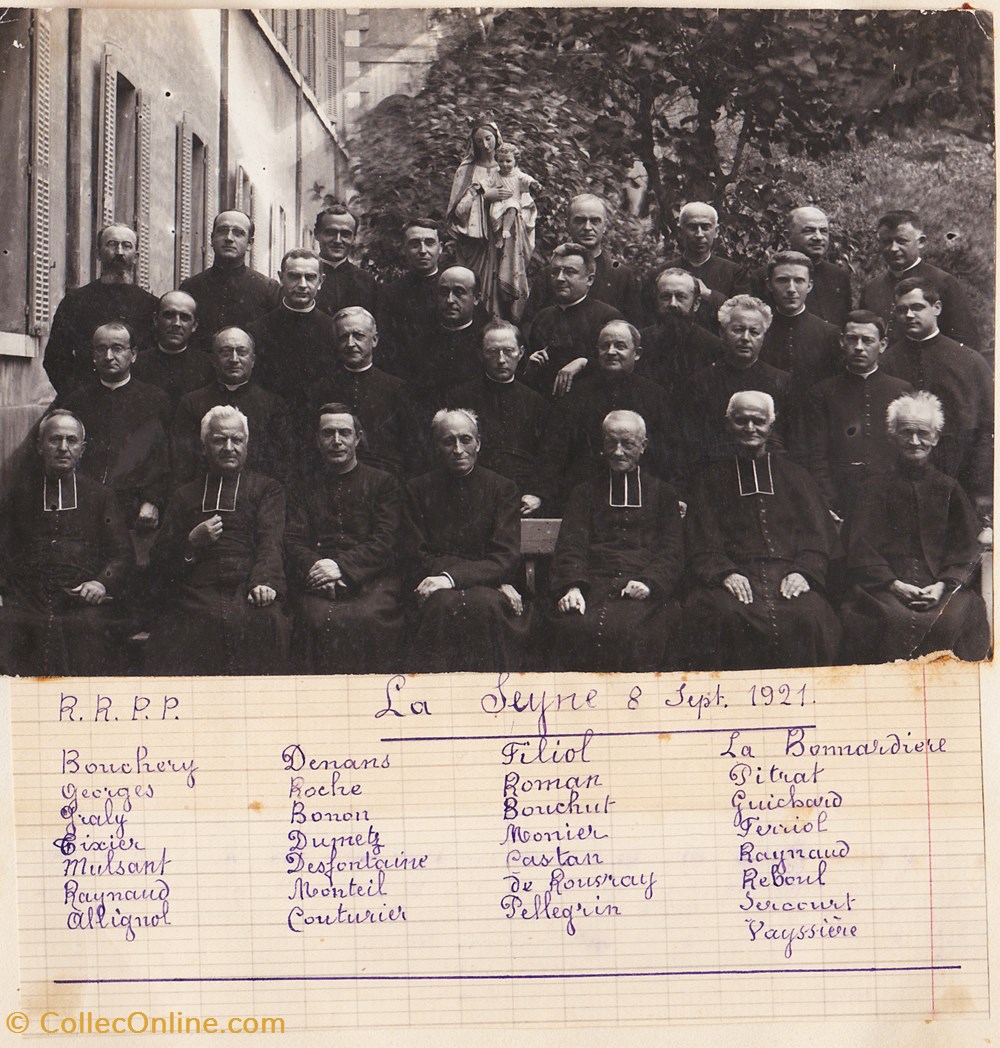 R. R. P. P.
La Seyne 8 Sept. 1921.
Bouchery
Georges
Graly
Tixier
Mulsant
Raynaud
Allignol
Denans
Roche
Bonon
Dumetz
Desfontaine
Monteil
Couturier
Filiol
Roman
Bouchut
Monier
Castan
de Rouvray
Pellegrin
La Bonnardiere
Pitrat
Guichard
Ferriol
Raynaud
Reboul
Sercourt
Vayssière
© CollecOnline.com